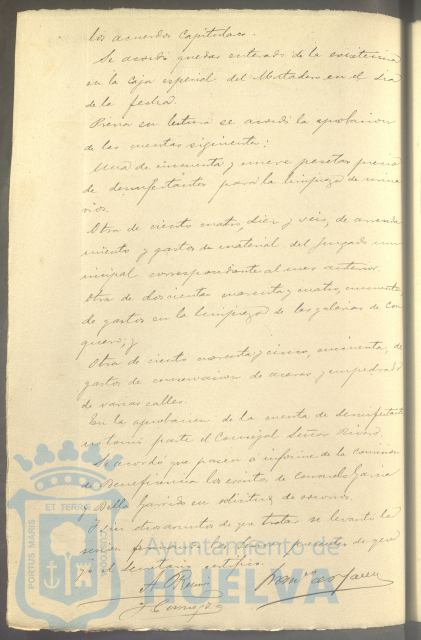 los acuerdos Capitulares.
Se acordó quedar enterado de la existencia
en la Caja especial del Matadero en el día
de la fecha.
Previa su lectura se acordó la aprobacion
de las cuentas siguientes:
Una de cincuenta y nueve pesetas precio
de desinfectantes para la limpieza de urina
rios.
Otra de ciento cuatro, diez y seis, de arrenda
miento y gastos de material del Juzgado mu
nicipal correspondiente al mes anterior.
Otra de doscientas cuarenta y cuatro, cincuenta
de gastos en la limpieza de las galerías de Con
quero; y
Otra de ciento cuarenta y cinco, cincuenta, de
gastos de conservacion de aceras y empedrado
de varias calles.
En la aprobacion de la cuenta de desinfectantes
no tomó parte el Concejal Señor
Se acordó que pasen a informe de la Comision
de Beneficencia los escritos de Consuelo Garcia
y Garrido en solicitud de socorros.
Y sin otros asuntos de que tratar se levantó la
sesion firmando los Señores presentes de que
yo el Secretario certifico.
PORTUS MARIS
ET TERRÆ
Ayuntamiento de
HUELVA